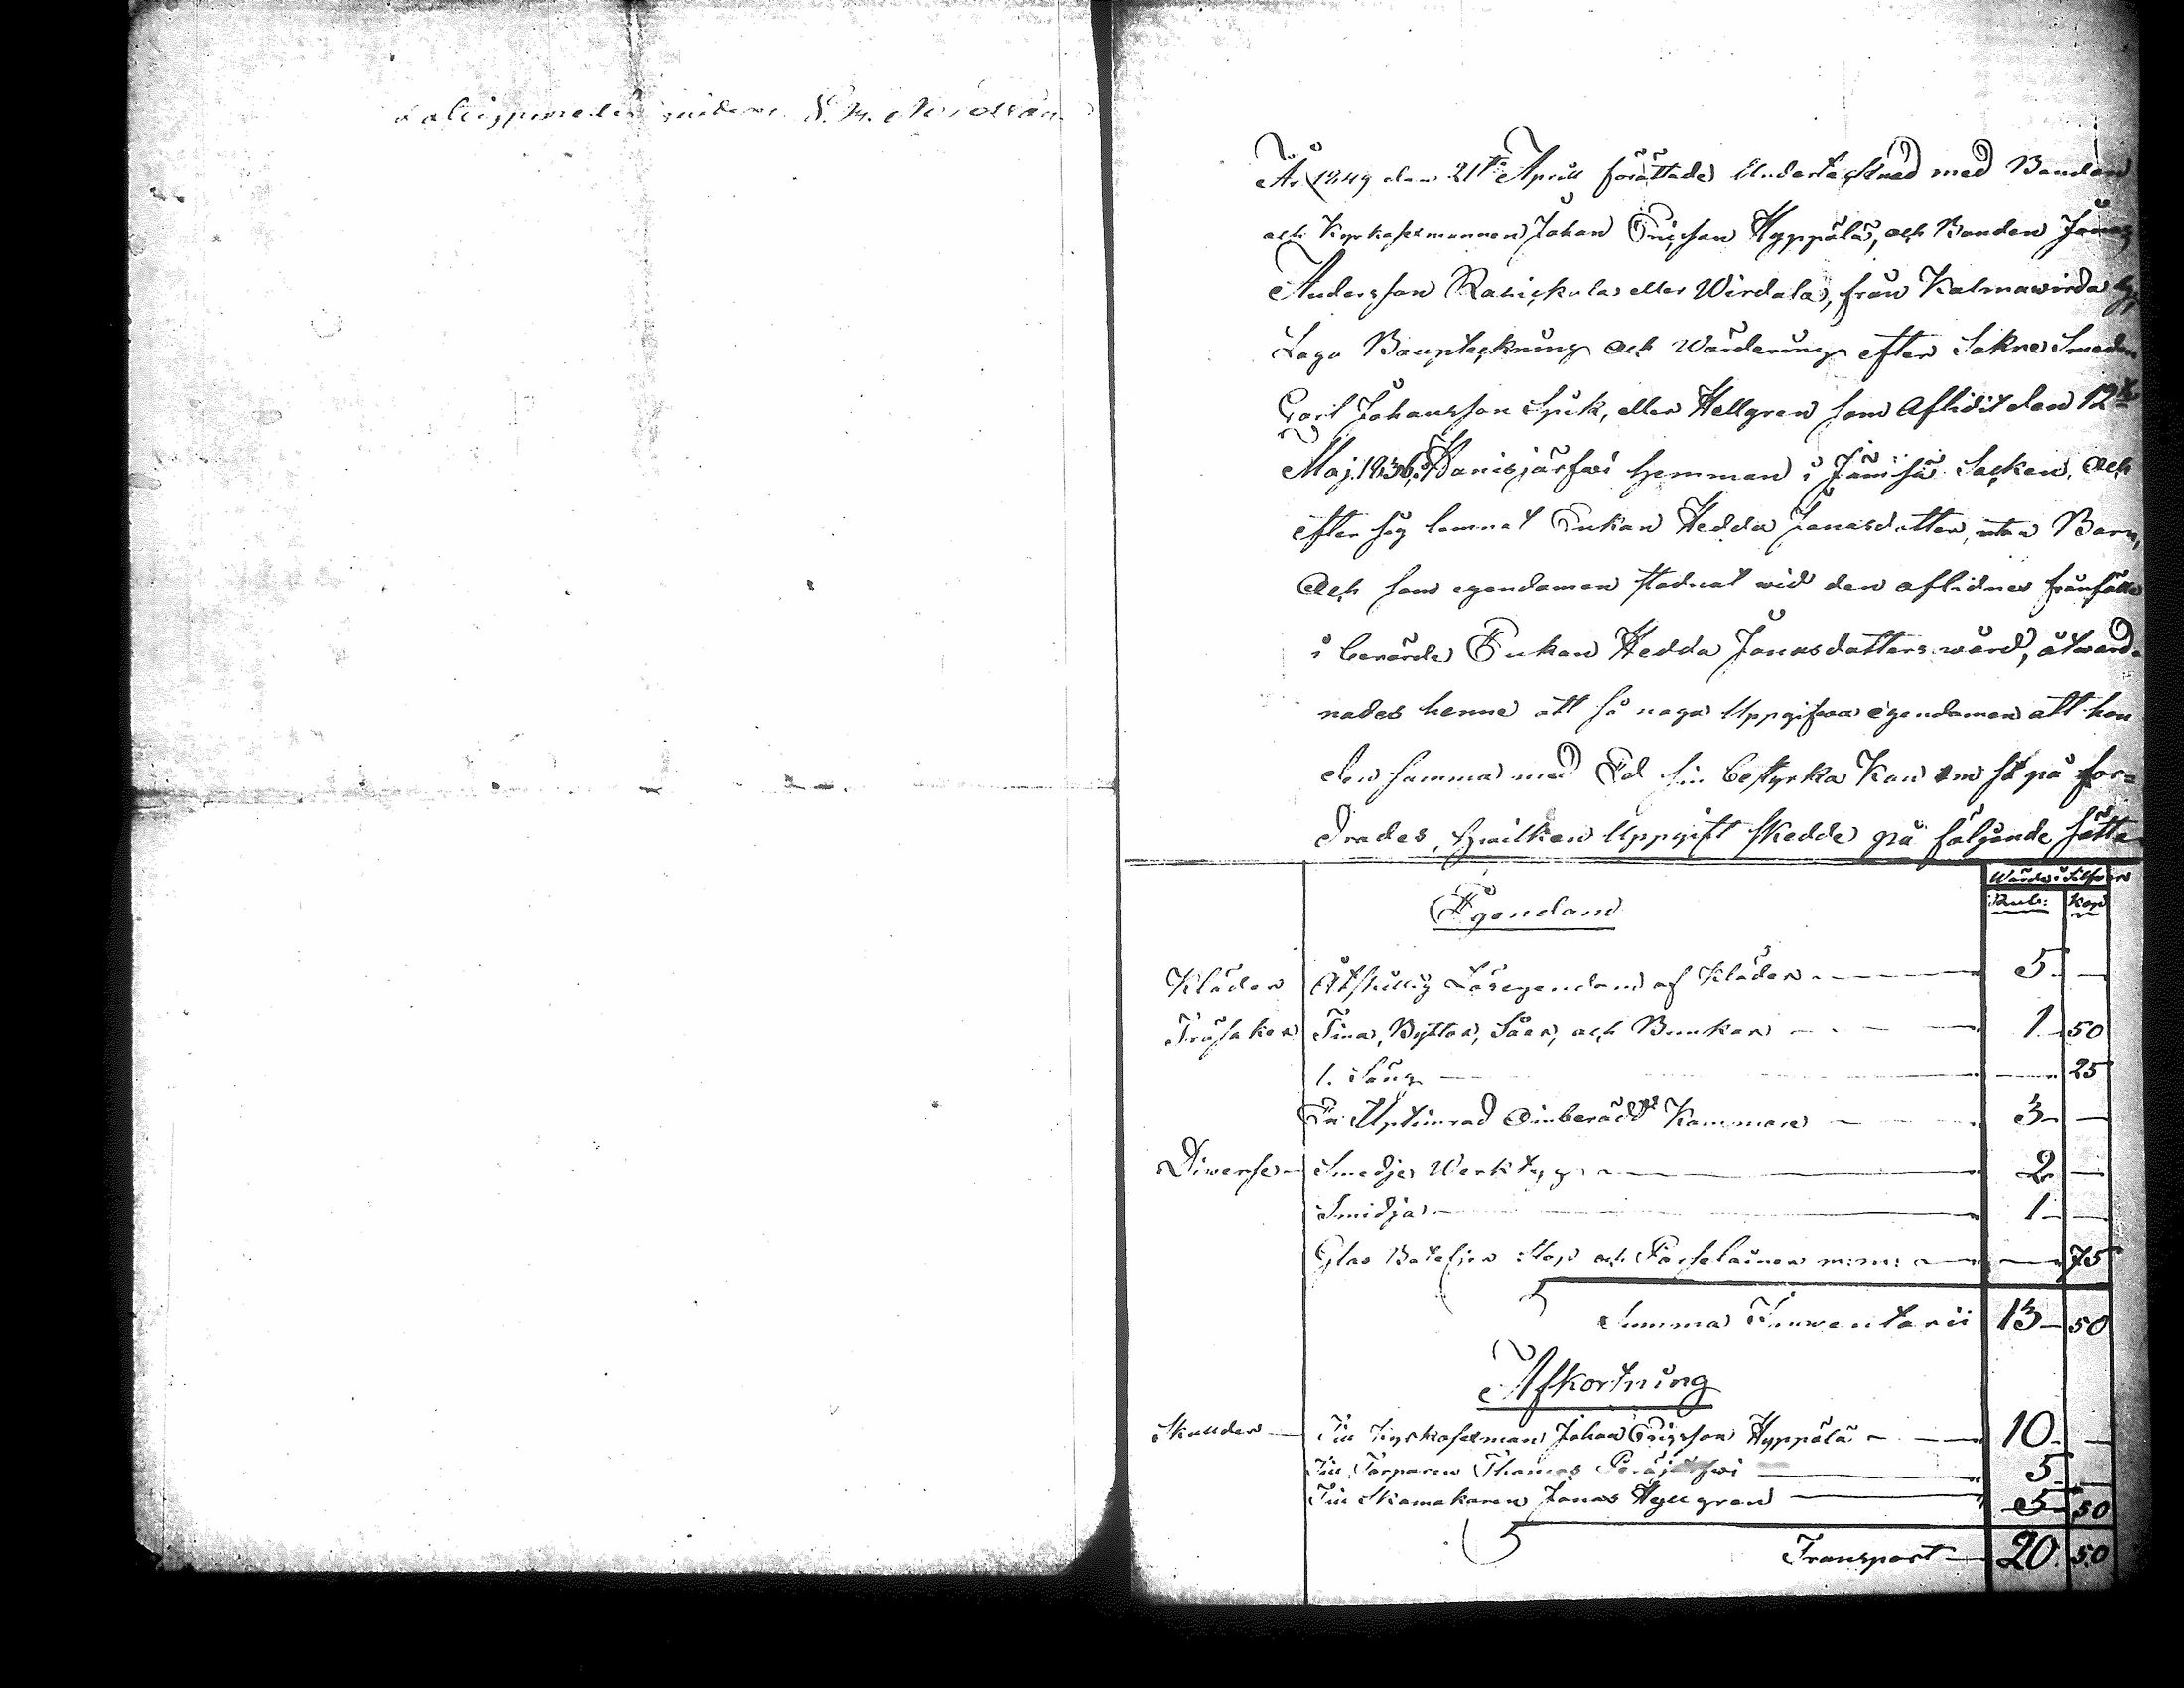 År 1849 den 21te Aprill förättade Undertecknad med Bonden
och Kyrkosexmannen Johan Ericsson Hyppälä, och Bonden Jonas
Andersson eller Wirdala, från Kalmawirda by,
Laga Bouptekning och Wärdering efter Sokne Smeden
Carl Johansson Spik, eller Hellgren som Aflidit den 12te
Maj 1836, hemman i Jämsä Socken, och
efter sig lemnat Enkan Hedda Jonasdotter, utan Barn,
Och som egendomen stadnat wid den aflidnes frånfälle
i berörde Enkan Hedda Jonasdotters wård, åtwar-
nades henne att så noga Uppgifwa egendomen att hon
den samma med Ed sin bestyrka Kan om så på for=
drades, hwilken Uppgift skedde på följande sätt
Wärde i Silfwer
Egendom Rub: Kop
Kläder Åtskillig Lösegendom af Kläder 5 —
Träsaker Tina, Byttor, Såar, och Bunkar 1 50
1. Säng — 25
En Uptimrad Oinberädd Kammare 3 —
Diverse Smedje Werktyg 2 —
Smidja 1 —
Glas Boteljer Stop och Porselainer m:m: — 75
Summa Inwentarii 13 50
Afkortning
Skulder Till Kyrkosexman Johan Ericsson Hyppälä 10 —
Till Torparen Thomas Peräjärfwi 5 —
Till Skomakaren Jonas Hellgren 5 50
Transport 20 50